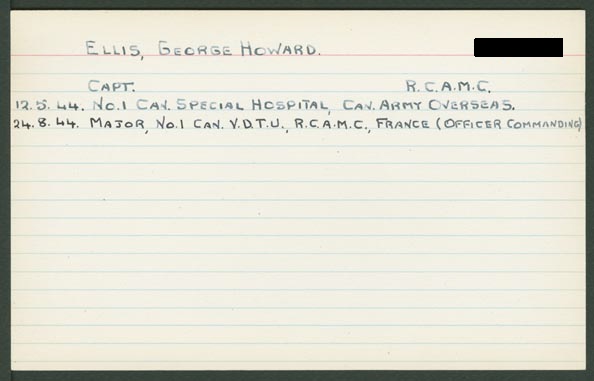 ELLIS, GEORGE HOWARD.
CAPT. R.C.A.M.C.
12.5.44. NO.1 CAN. SPECIAL HOSPITAL, CAN. ARMY OVERSEAS.
24.8.44. MAJOR, NO.1 CAN. V.D.T.U., R.C.A.M.C., FRANCE (OFFICER COMMANDING)